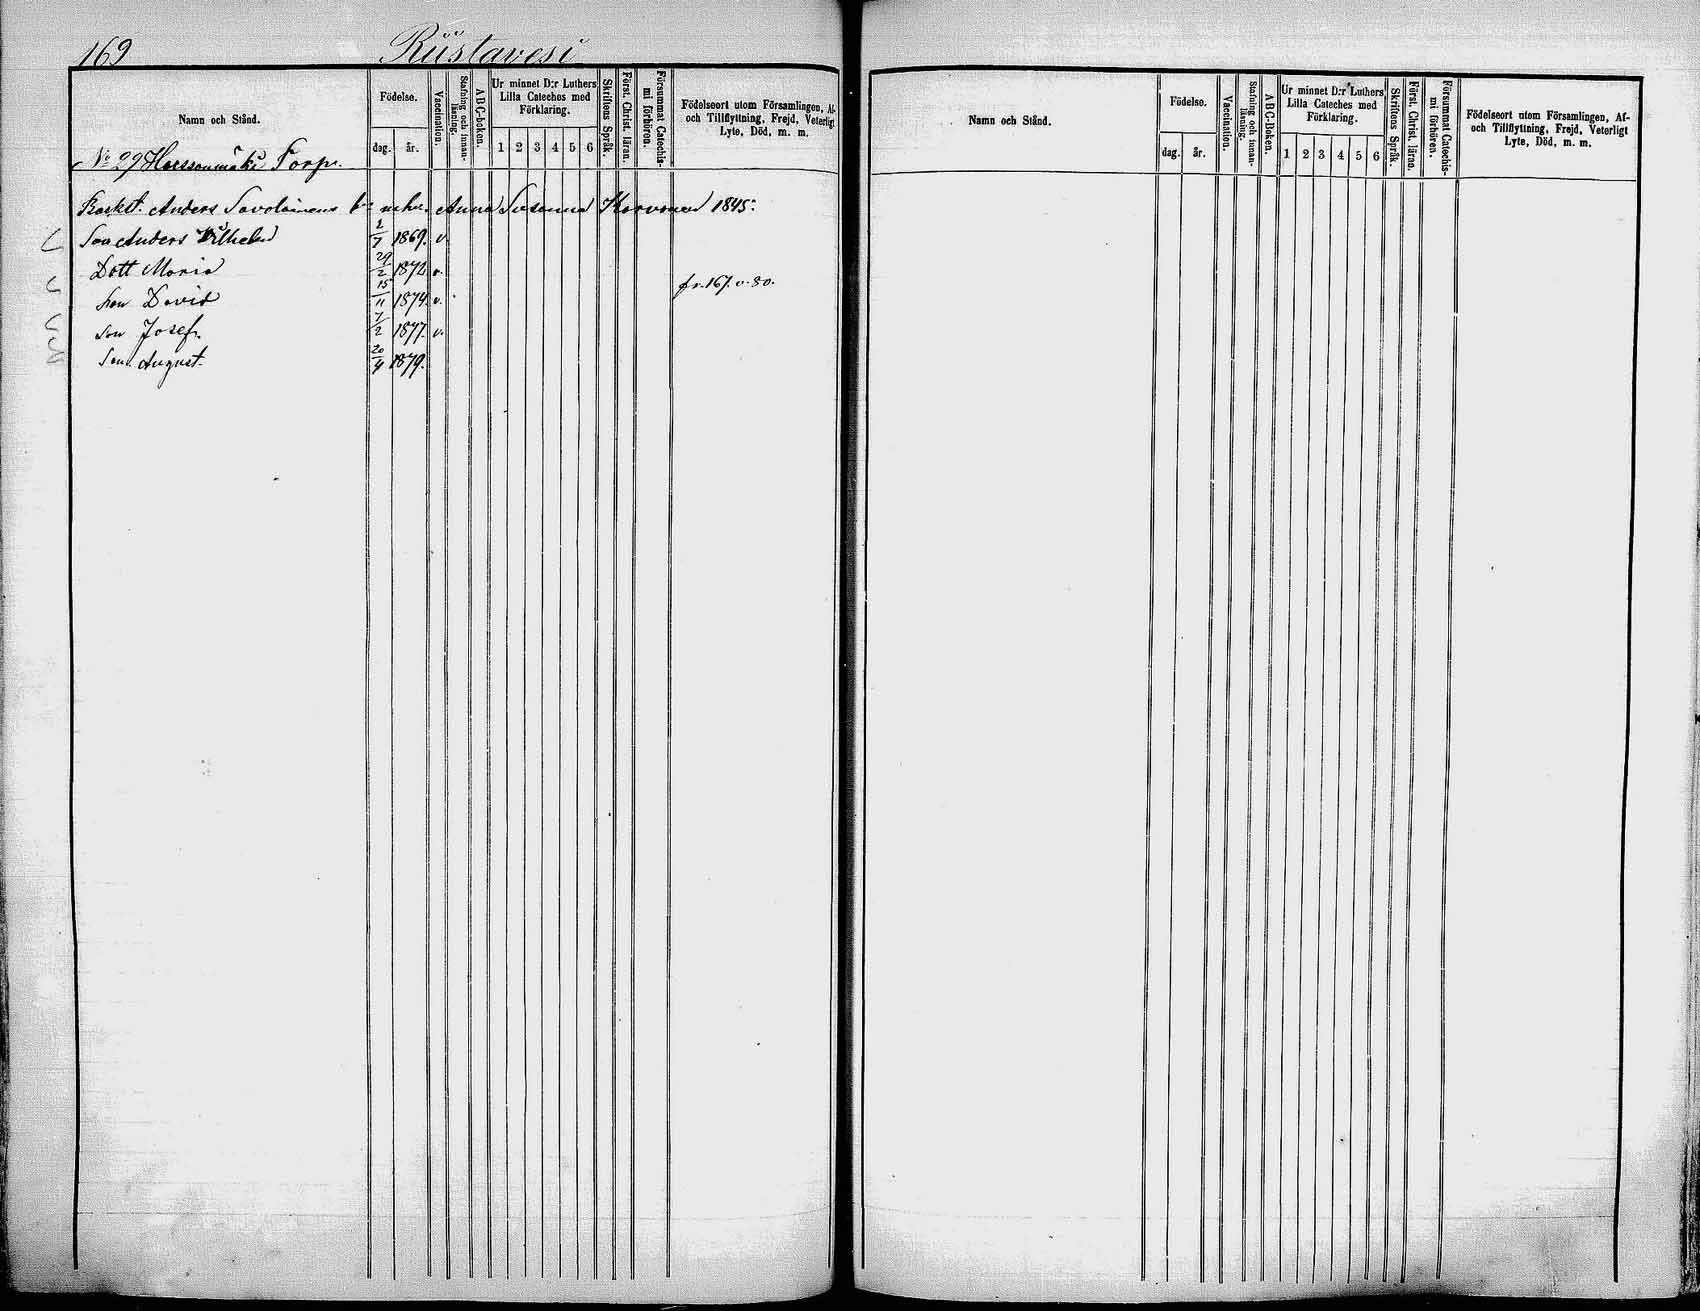 169 Riistavesi
Namn och Stånd.
Födelse.
dag. år.
Vaccination.
Stafning och innanläsning.
ABC-boken.
Ur minnet D:r Luthers Lilla Cateches med Förklaring.
1 2 3 4 5 6
Skriftens Språk.
Först. Christ. läran.
Försummat Catechismi förhören.
Födelseort utom Församlingen, Af- och Tillflyttning, Frejd, Veterligt Lyte, Död, m. m.
No 29 Torp.
Anders Savolainens Anna Susanna Korvonen 1845.
Son Anders Vilhelm 2/7 1869. v.
Dott Maria 29/2 1872 v.
fr. 167. v. 80.
Son David 15/11 1874. v.
Son Josef. 7/2 1877. v.
Son August. 20/4 1879.
Namn och Stånd.
Födelse.
dag. år.
Vaccination.
Stafning och innanläsning.
ABC-boken.
Ur minnet D:r Luthers Lilla Cateches med Förklaring.
1 2 3 4 5 6
Skriftens Språk.
Först. Christ. läran.
Försummat Catechismi förhören.
Födelseort utom Församlingen, Af- och Tillflyttning, Frejd, Veterligt Lyte, Död, m. m.